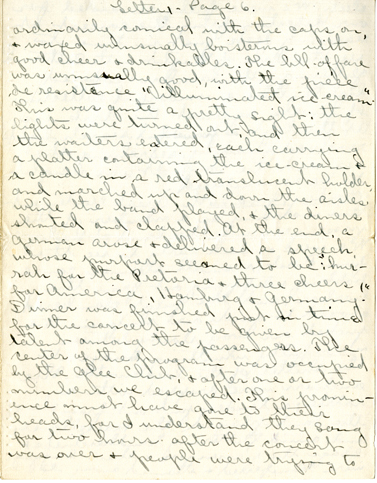 Letters - Page 6.
ordinarily comical with the caps on,
& waxed unusually boisterous with
good cheer & drinkables. The bill-of-fare
was unusually good, with the piece
de resistence "illuminated ice-cream".
This was quite a pretty sight: the
lights were turned out, and then
the waiters entered, each carrying
a platter containing the ice-cream &
a candle in a red translucent holder,
and marched up and down the aisles
while the band played, & the diners
shouted and clapped. At the end, a
german arose & delivered a speech,
whose purport seemed to be, "hur-
rah for the Pretoria & three cheers
for America, Hamburg & Germany."
Dinner was finished just in time
for the concert, to be given by
talent among the passengers. The
center of the program was occupied
by the Glee Club, & after one or two
numbers we escaped. This promin-
ence must have gone to their
heads, for I understand they sang
for two hours after the concert
was over & people were trying to